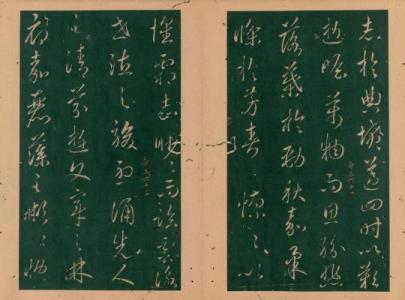 志於典墳遵四時以歎
逝瞻萬物而思紛悲
落葉於勁秋嘉柔
條於芳春心懍懍以
懷霜志眇眇而臨雲詠
世德之駿烈誦先人
之清芬遊文章之林
府嘉麗藻之彬彬慨